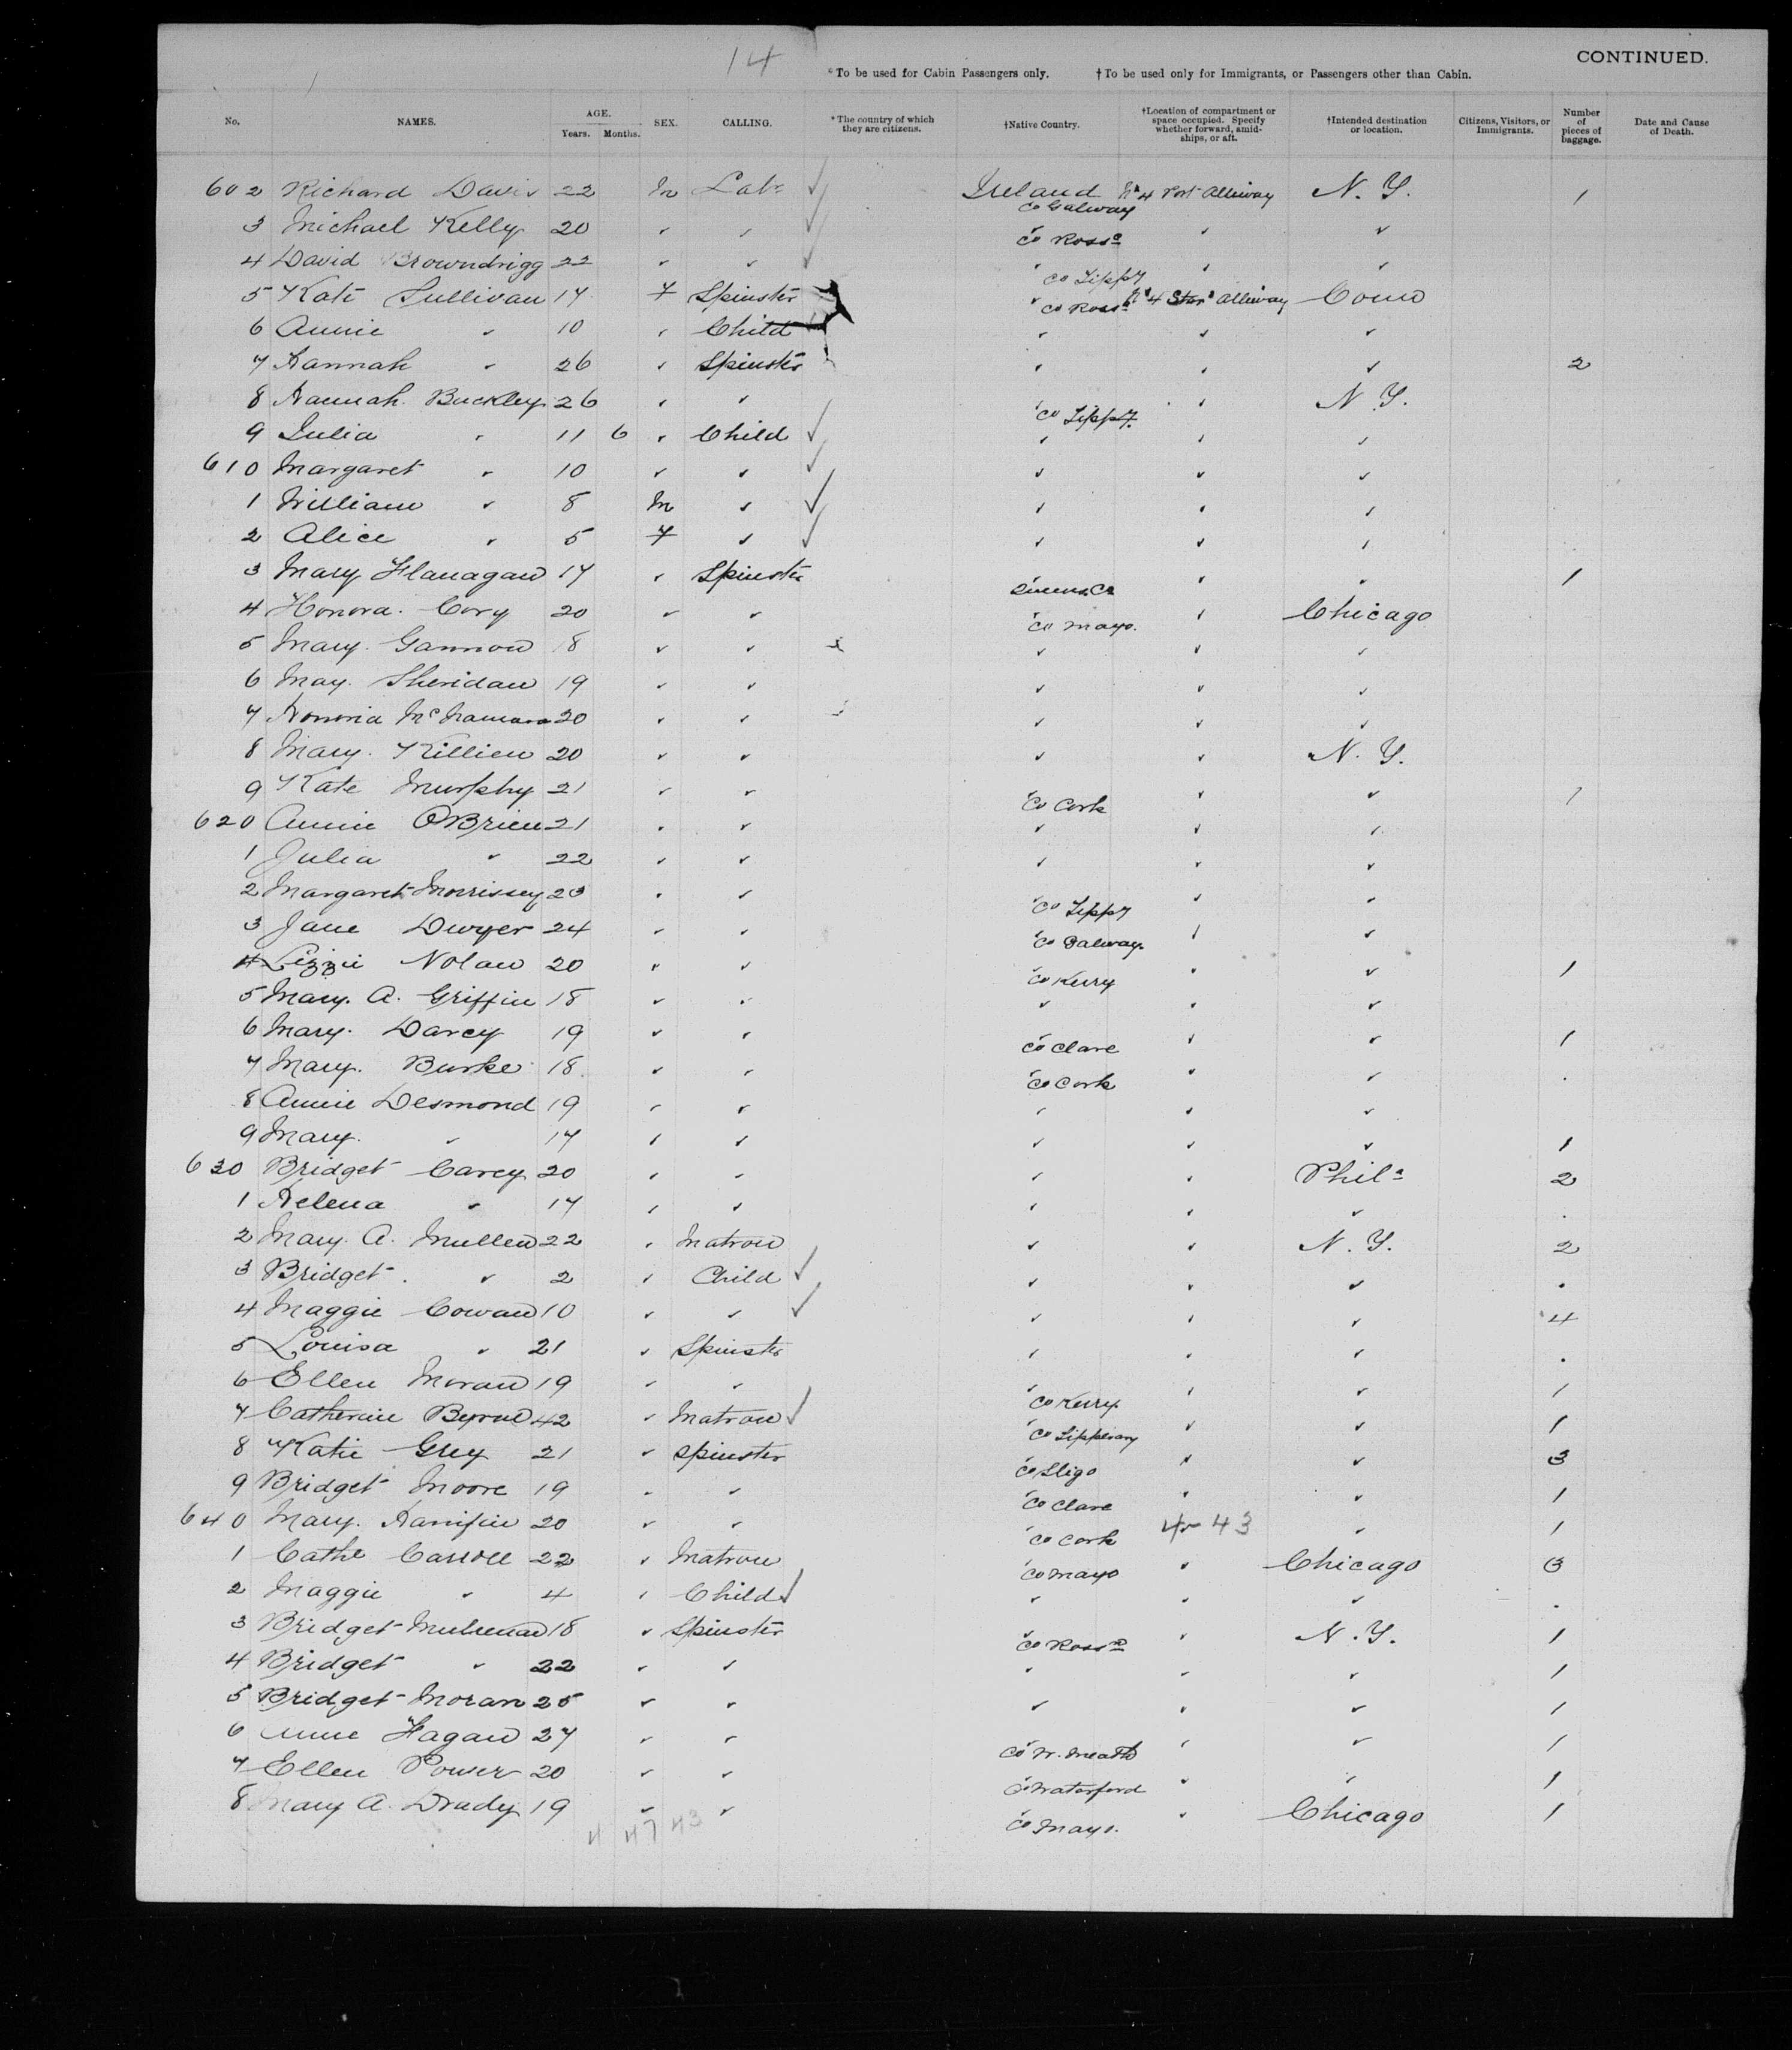 14
CONTINUED.
*To be used for Cabin Passengers only. †To be used only for Immigrants, or Passengers other than Cabin.
No. NAMES. AGE. Years. Months. SEX. CALLING. *The country of which they are citizens. †Native Country. †Location of compartment or space occupied. Specify whether forward, amidships, or aft. †Intended destination or location. Citizens, Visitors, or Immigrants. Number of pieces of baggage. Date and Cause of Death.
602 Richard Davis 22 M Labr Ireland Co Galway No 4 Port Alleiway N. Y. 1
3 Michael Kelly 20 " " " Co Rossc " "
4 David Browndrigg 22 " " " Co Tippy " "
5 Kate Sullivan 17 F Spinster " Co Rossc No 4 Star Alleiway Conn
6 Annie " 10 " Child " " "
7 Hannah " 26 " Spinster " " " 2
8 Hannah Buckley 26 " " " Co Tippy " N. Y.
9 Julia " 11 6 " Child " " "
610 Margaret " 10 " " " " "
1 William " 8 M " " " "
2 Alice " 5 F " " " "
3 Mary Flanagan 17 " Spinster " Queens Co " " 1
4 Honora Cory 20 " " " Co Mayo " Chicago
5 Mary Gannon 18 " " " " "
6 May Sheridan 19 " " " " "
7 Honoria McNamara 20 " " " " "
8 Mary Killien 20 " " " " N. Y.
9 Kate Murphy 21 " " " Co Cork " " 1
620 Annie OBrien 21 " " " " "
1 Julia " 22 " " " " "
2 Margaret Morrissey 23 " " " Co Tippy " "
3 Jane Dwyer 24 " " " Co Galway " "
4 Lizzie Nolan 20 " " " Co Kerry " " 1
5 Mary A. Griffin 18 " " " " "
6 Mary Darcy 19 " " " Co Clare " " 1
7 Mary Burke 18 " " " Co Cork " " .
8 Annie Desmond 19 " " " " "
9 Mary " 17 " " " " " 1
630 Bridget Carey 20 " " " " Phila 2
1 Helena " 17 " " " " " .
2 Mary A. Mullen 22 " Matron " " N. Y. 2
3 Bridget " 2 " Child " " " .
4 Maggie Cowan 10 " " " " " 4
5 Louisa " 21 " Spinster " " " .
6 Ellen Moran 19 " " " Co Kerry " " 1
7 Catherine Byrne 42 " Matron " Co Tipperary " " 1
8 Katie Grey 21 " Spinster " Co Sligo " " 3
9 Bridget Moore 19 " " " Co Clare " " 1
640 Mary Hanifin 20 " " " Co Cork 4 43 " 1
1 Cathe Carroll 22 " Matron " Co Mayo " Chicago 3
2 Maggie " 4 " Child " " " .
3 Bridget 18 " Spinster " Co Rossc " N. Y. 1
4 Bridget " 22 " " " " " 1
5 Bridget Moran 25 " " " " " 1
6 Anne Fagan 27 " " " Co W. Meath " " 1
7 Ellen Power 20 " " " Co Waterford " " 1
8 Mary A. Drudy 19 " " " Co Mayo " Chicago 1
4 47 43